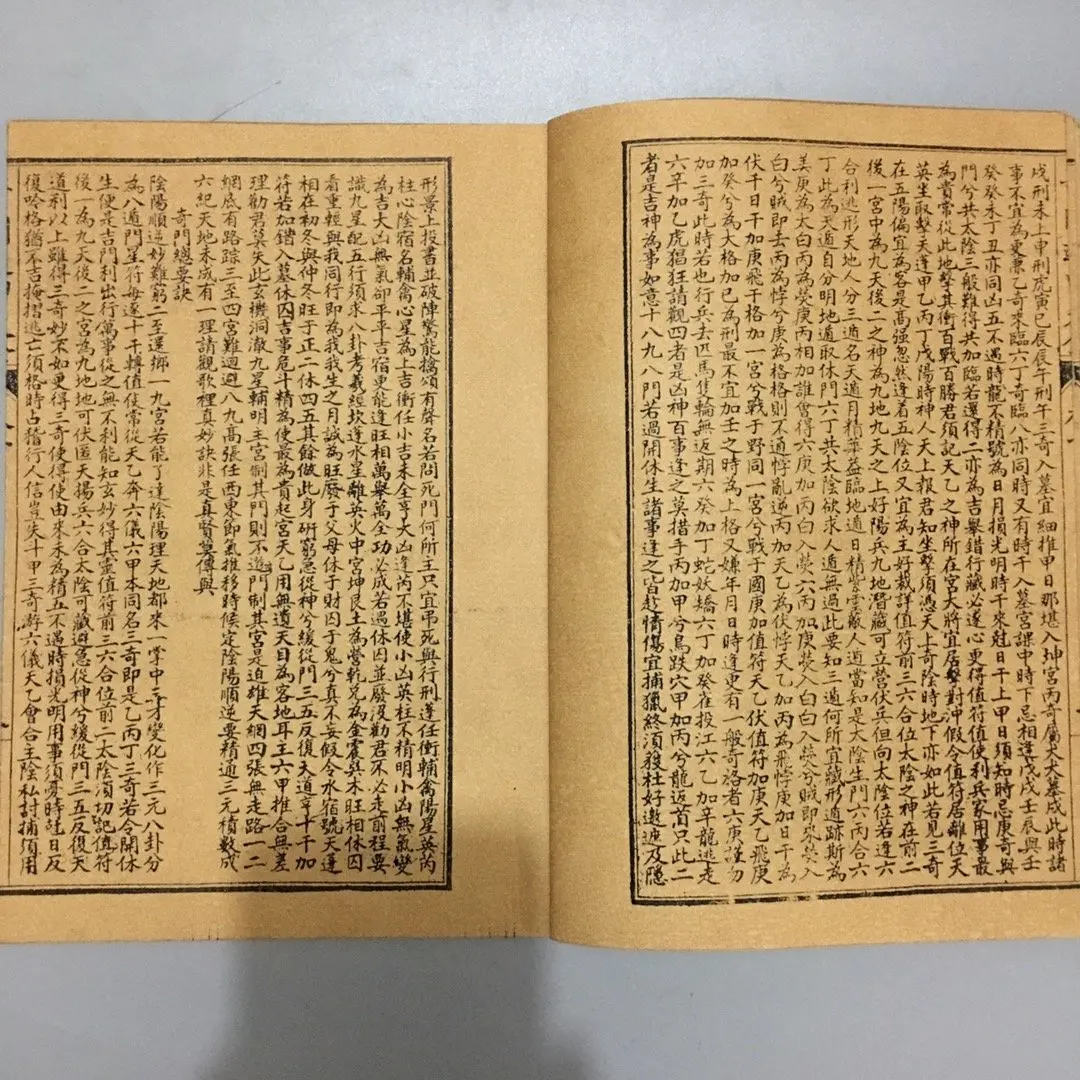 戌刑未上申刑虎寅巳辰辰午刑午三奇入墓宜細推甲日那堪入坤宮丙奇屬火火墓戌此時諸
事不宜為更兼乙奇來臨六丁奇臨八亦同時又有時干入墓宮課中時下忌相逢戊戌壬辰與壬
癸癸未丁丑亦同凶五不遇時龍不精號為日月損光明時干來尅日干上甲日須知時忌庚奇與
門兮共太陰三般難得共加臨若還得二亦為吉舉錯行藏必遂心更得值符值使利兵家用事最
為貴常從此地擊其衝百戰百勝君須記天乙之神所在宮大將宜居擊對沖假令值符居離位天
英坐取擊天蓬甲乙丙丁戊陽時神人天上報君知坐擊須憑天上奇陰時地下亦如此若見三奇
在五陽偏宜為客是高强忽然逢着五陰位又宜為主好裁詳值符前三六合位太陰之神在前二
後一宮中為九天後二之神為九地九天之上好陽兵九地潛藏可立營伏兵但向太陰位若逢六
合利逃形天地人分三遁名天遁月精華益臨地遁日精紫雲蔽人遁當知是太陰生門六丙合六
丁此為天遁自分明地遁取休門六丁共太陰欲求人遁無過此要知三遁何所宜藏形遁跡斯為
美庚為太白丙為熒庚丙相加誰會得六庚加丙白入熒六丙加庚熒入白白入熒兮賊即來熒入
白兮賊即去丙為悖兮庚為格格則不通悖亂逆丙加天乙為伏悖天乙加丙為飛悖庚加日干為
伏干日干加庚飛干格加一宮兮戰于野同一宮兮戰于國庚加值符天乙伏值符加庚天乙飛庚
加癸兮為大格加己為刑最不宜加壬之時為上格又嫌年月日時逢更有一般奇洛者六庚謹勿
加三奇此時若也行兵去匹馬隻輪無返期六癸加丁蛇妖矯六丁加癸雀投江六乙加辛龍逃走
六辛加乙虎猖狂請觀四者是凶神百事逢之莫措手丙加甲兮鳥跌穴甲加丙兮龍返首只此二
者是吉神為事如意十八九八門若過開休生諸事逢之皆趁情傷宜捕獵終須獲杜好邀遮及隱
形景上投書並破陣驚能擒頌有聲名若問死門何所主只宜弔死與行刑蓬任衝輔禽陽星英芮
柱心陰宿名輔禽心星為上吉衝任小吉未全亨大凶逢芮不堪使小凶英柱不精明小凶無氣變
為吉大凶無氣卻平平吉宿更能逢旺相萬舉萬全功必成若過休囚並廢沒勸君不必走前程要
識九星配五行須求八卦考羲經坎逢水星離英火中宮坤艮土為營乾兌為金震巽木旺相休囚
看重輕與我同行即為我我生之月誠為旺廢于父母休于財囚于鬼兮真不妄假令水宿號天蓬
相在初冬與仲冬旺于正二休四五其餘做此身研窮急從神兮緩從門三五反復天道辛十干加
符若加錯入墓休囚吉事危斗精為使最為貴起宮天乙用無遺天目為客地耳主六甲推合無差
理勸君莫失此玄機洞澈九星輔明主宮制其門則不迫門制其宮是迫雄天網四張無走路一二
網底有路踪三至四宮難迴避八九高張任西東節氣推移時候定陰陽順逆要精通三元積數成
六紀天地未成有一理請觀歌裡真妙訣非是真賢莫傳與
奇門總要訣
陰陽順逆妙難窮二至還鄉一九宮若能了達陰陽理天地都來一掌中三才變化作三元八卦分
為八遁門星符每逐十干轉值使常從天乙奔六儀六甲本同名三奇即是乙丙丁三奇若合開休
生便是吉門利出行萬事從之無不利能知玄妙得其靈值符前三六合位前二太陰須切記值符
後一為九天後二之宮為九地九地可伏匿天揚兵六合太陰可藏避急從神兮緩從門三五反復天
道利以上雖得三奇妙不如更得三奇使得使由來未為精五不遇時損光明用事須憂時尅日反
復吟格猶不吉掩摺逃亡須格時占稽行人信豈失十干三奇游六儀天乙會合主陰私討捕須用